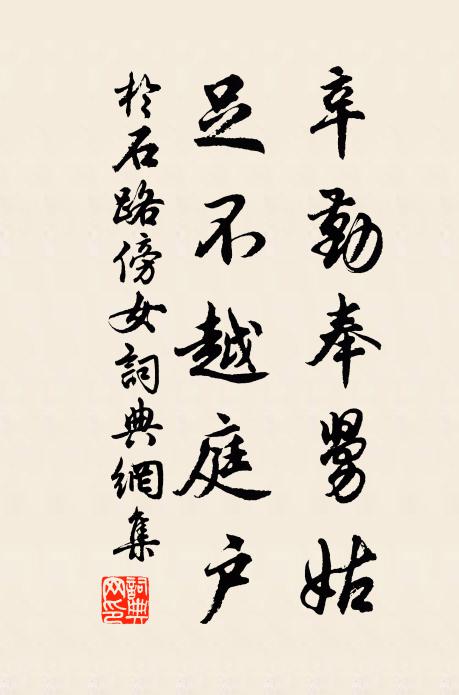 辛勤奉舅姑
足不越庭户
於石路傍女詞典網集
詞典网印